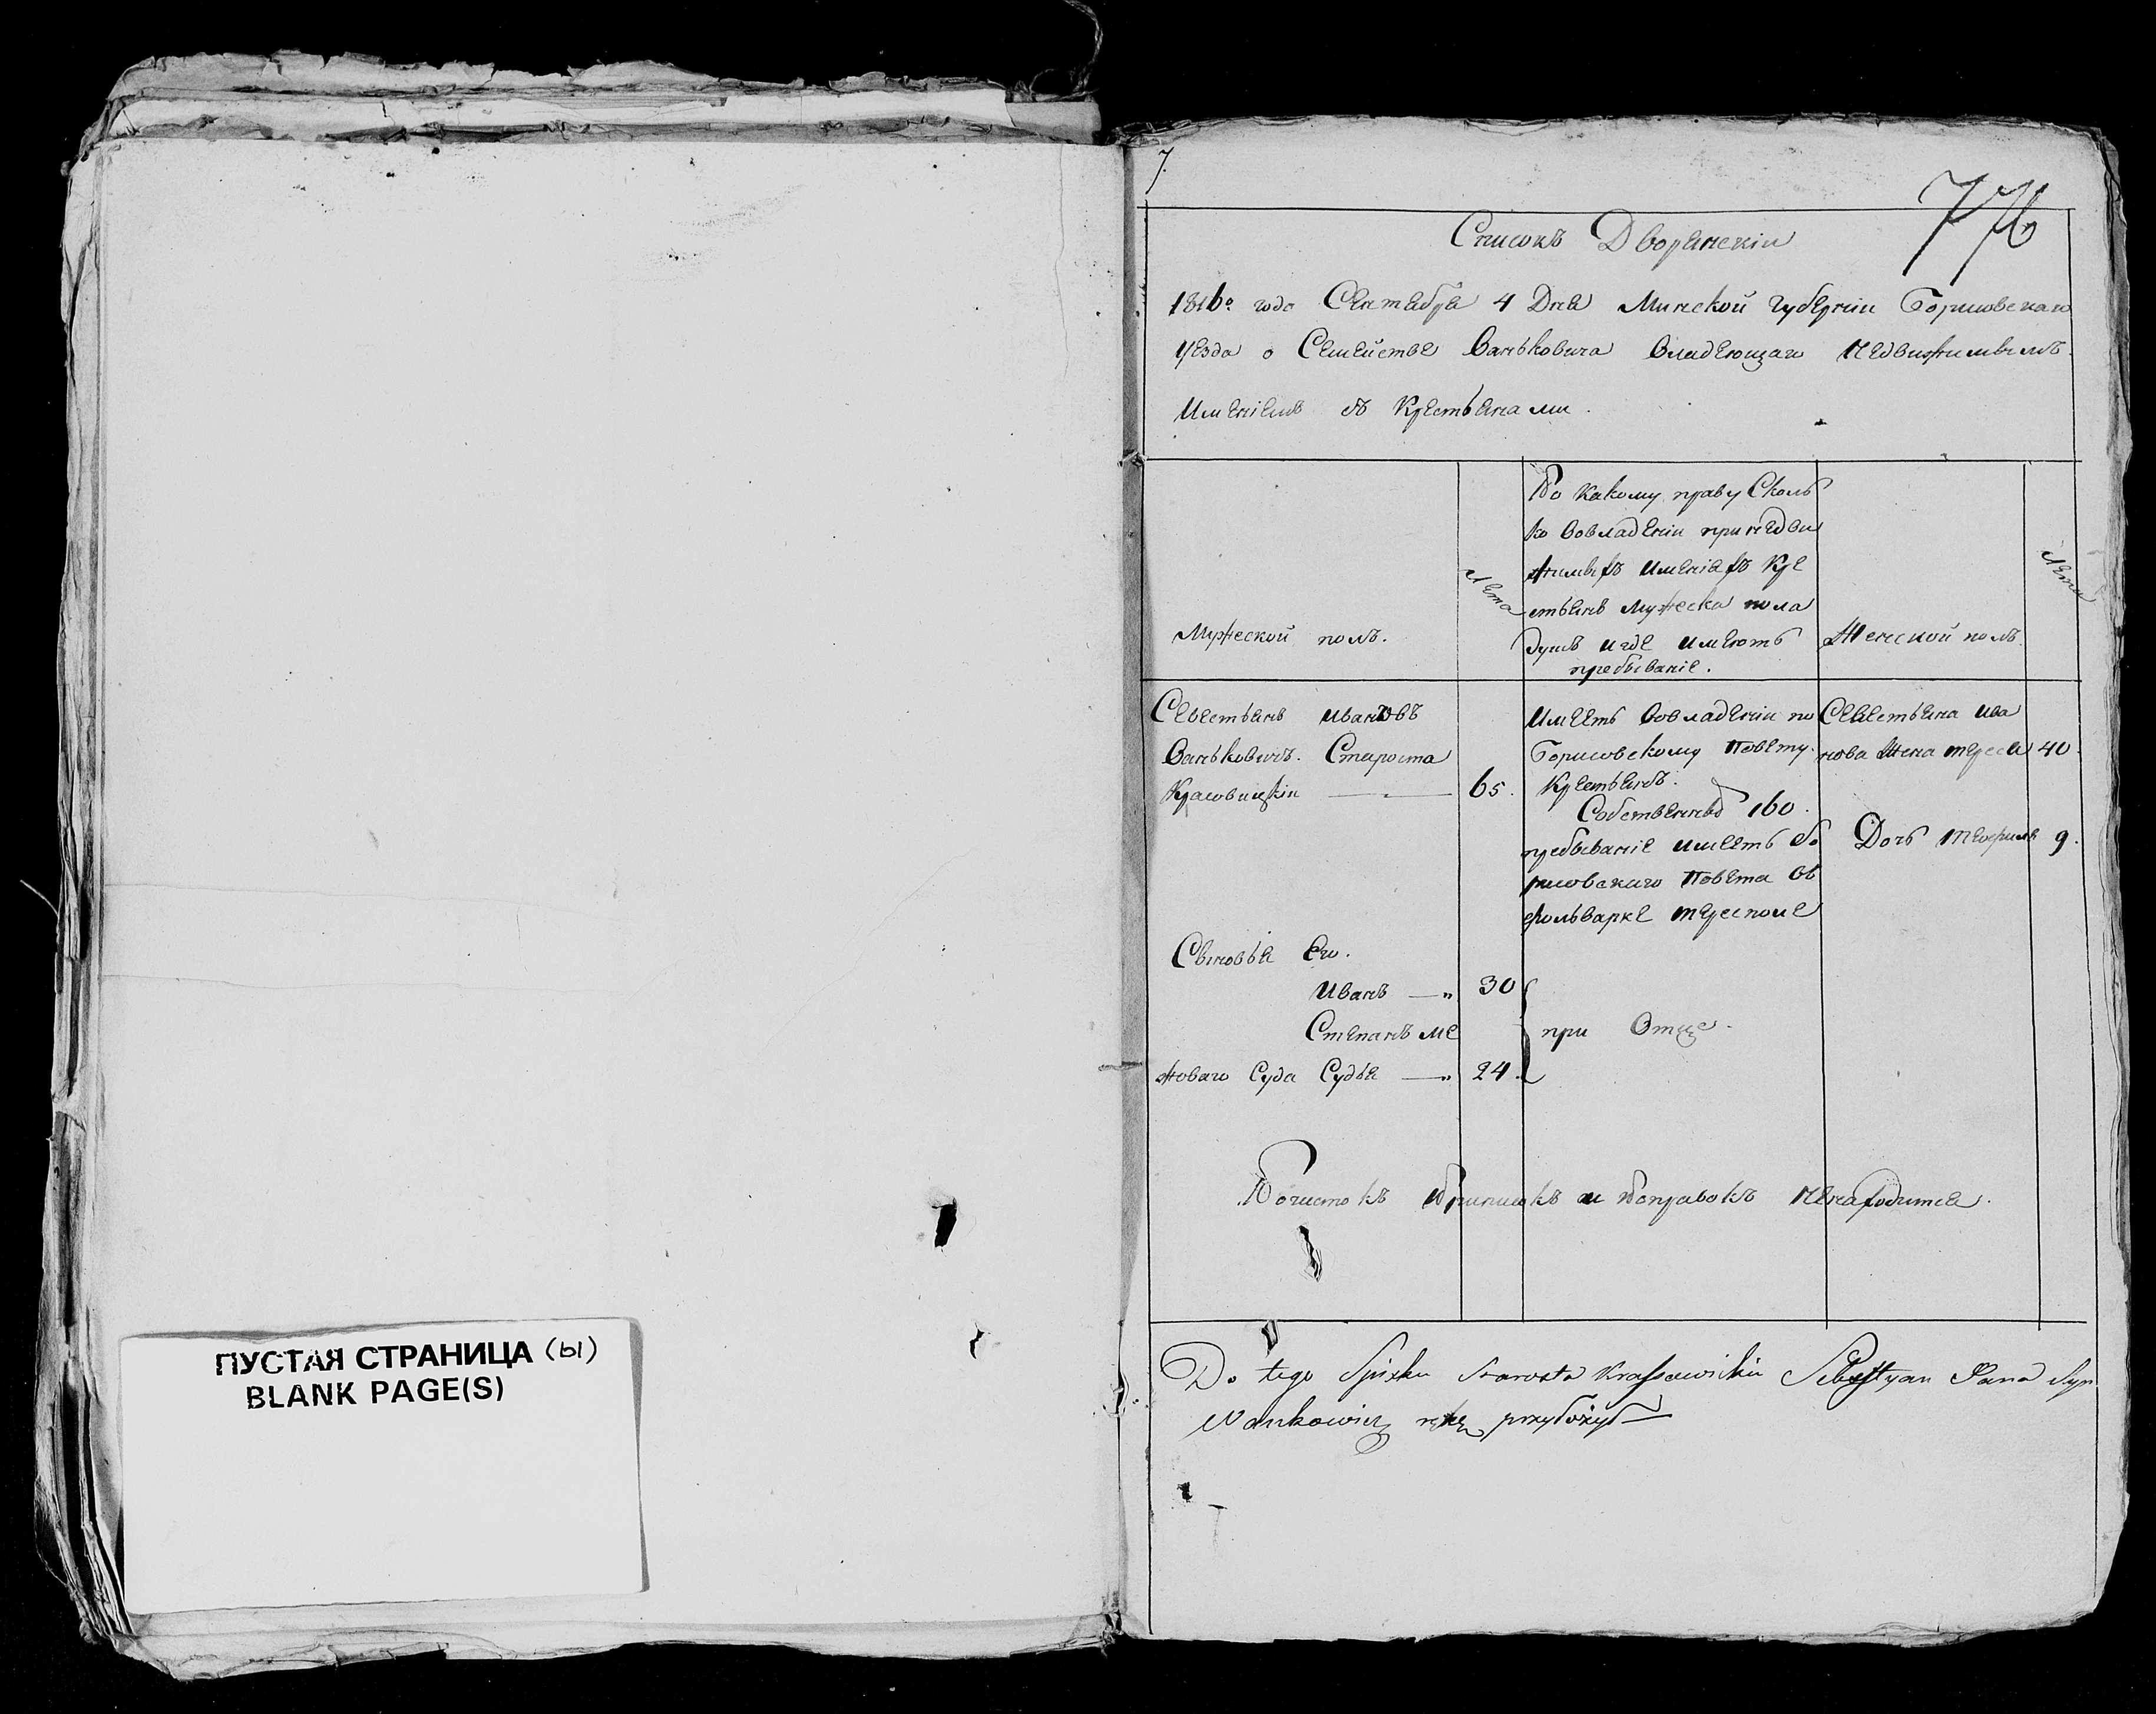 ПУСТАЯ СТРАНИЦА (ы)
BLANK PAGE(S)
7.
776
Списокъ Дворянскiи
1816го года Сентября 4 Дня Минской Губернiи Борисовскаго
Уезда о Семействе Ваньковича Владеющаго Недвижимымъ
Именiемъ съ Крестьянами.
Мужеской полъ.
Лета
По какому праву Сколь
ко вовладенiи принедви
жимыхъ Именiяхъ Кре
стьянъ Мужеска пола
душъ игде имеютъ
пребыванiе.
Женской полъ
Лета
Севестьянъ Ивановъ
Ваньковичъ. Староста
Красовицкiи 65.
Имеетъ вовладенiи по
Борисовскому Повету.
Крестьянъ.
Собственныхъ 160.
пребыванiе имеетъ бо
рисовскаго Повета въ
фольварке тересполе
Севестьяна ива
нова Жена тереса 40.
Дочь Теофиля 9.
Сыновья Его.
Иванъ — 30
Степанъ ме
жоваго Суда Судья — 24.
при Отце.
Почистокъ Приписокъ и Поправокъ Ненаходится.
Do tego Spisku Starosta Krassowicki Sebestyan Jana Syn
Wankowicz rękę przyłożył